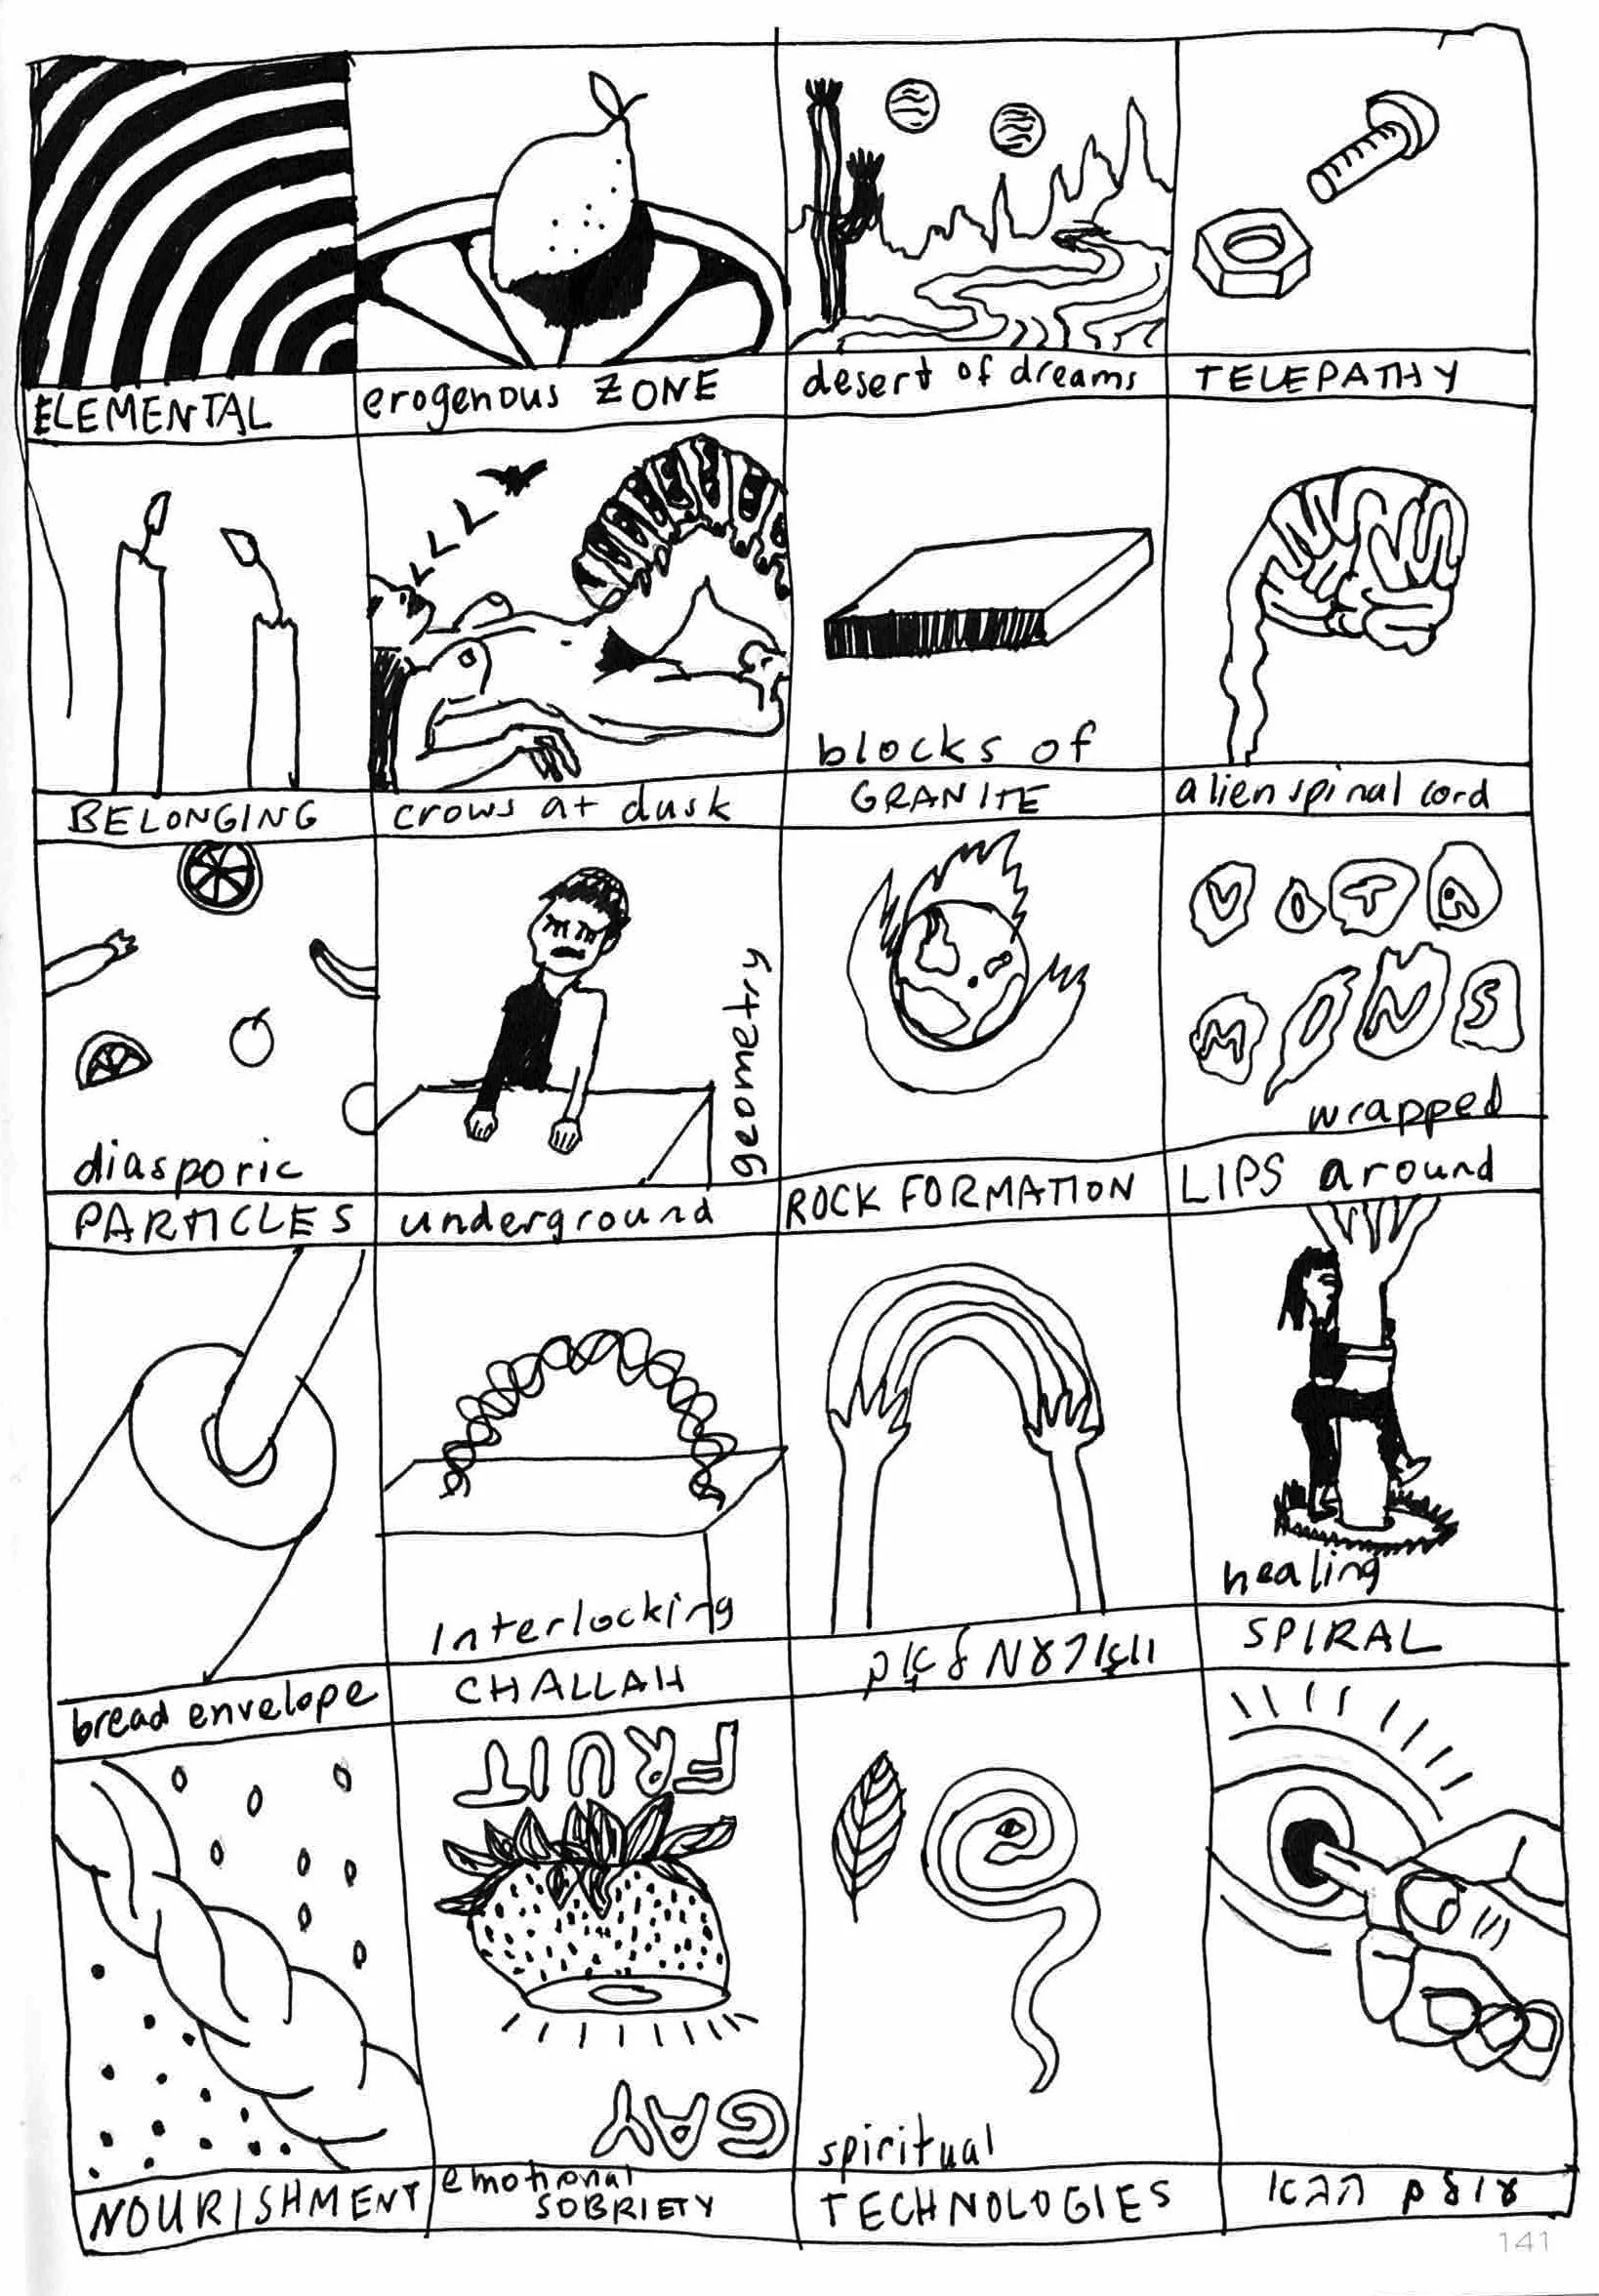 ELEMENTAL
erogenous ZONE
desert of dreams
TELEPATHY
BELONGING
crows at dusk
blocks of
GRANITE
alien spinal cord
diasporic
PARTICLES
geometry
underground
ROCK FORMATION
VITA
MINS
wrapped
LIPS around
bread envelope
Interlocking
CHALLAH
healing
SPIRAL
NOURISHMENT
FRUIT
GAY
emotional
SOBRIETY
spiritual
TECHNOLOGIES
עולם הבא
141